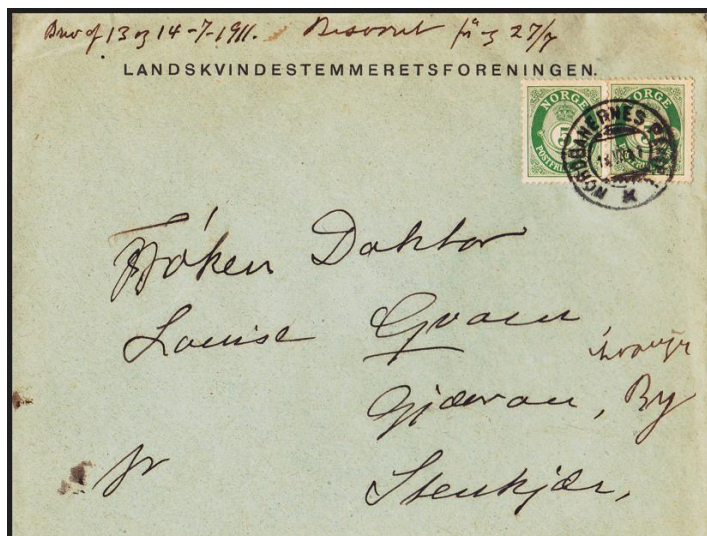 Brev af 13 og 14-7-1911. Besvaret 27/7
LANDSKVINDESTEMMERETSFORENINGEN.
NORGE NORGE
POSTFRIM
NORDBANERNES
Frøken Doktor
Louise Qvam
Gjævran, By
pr Stenkjær,